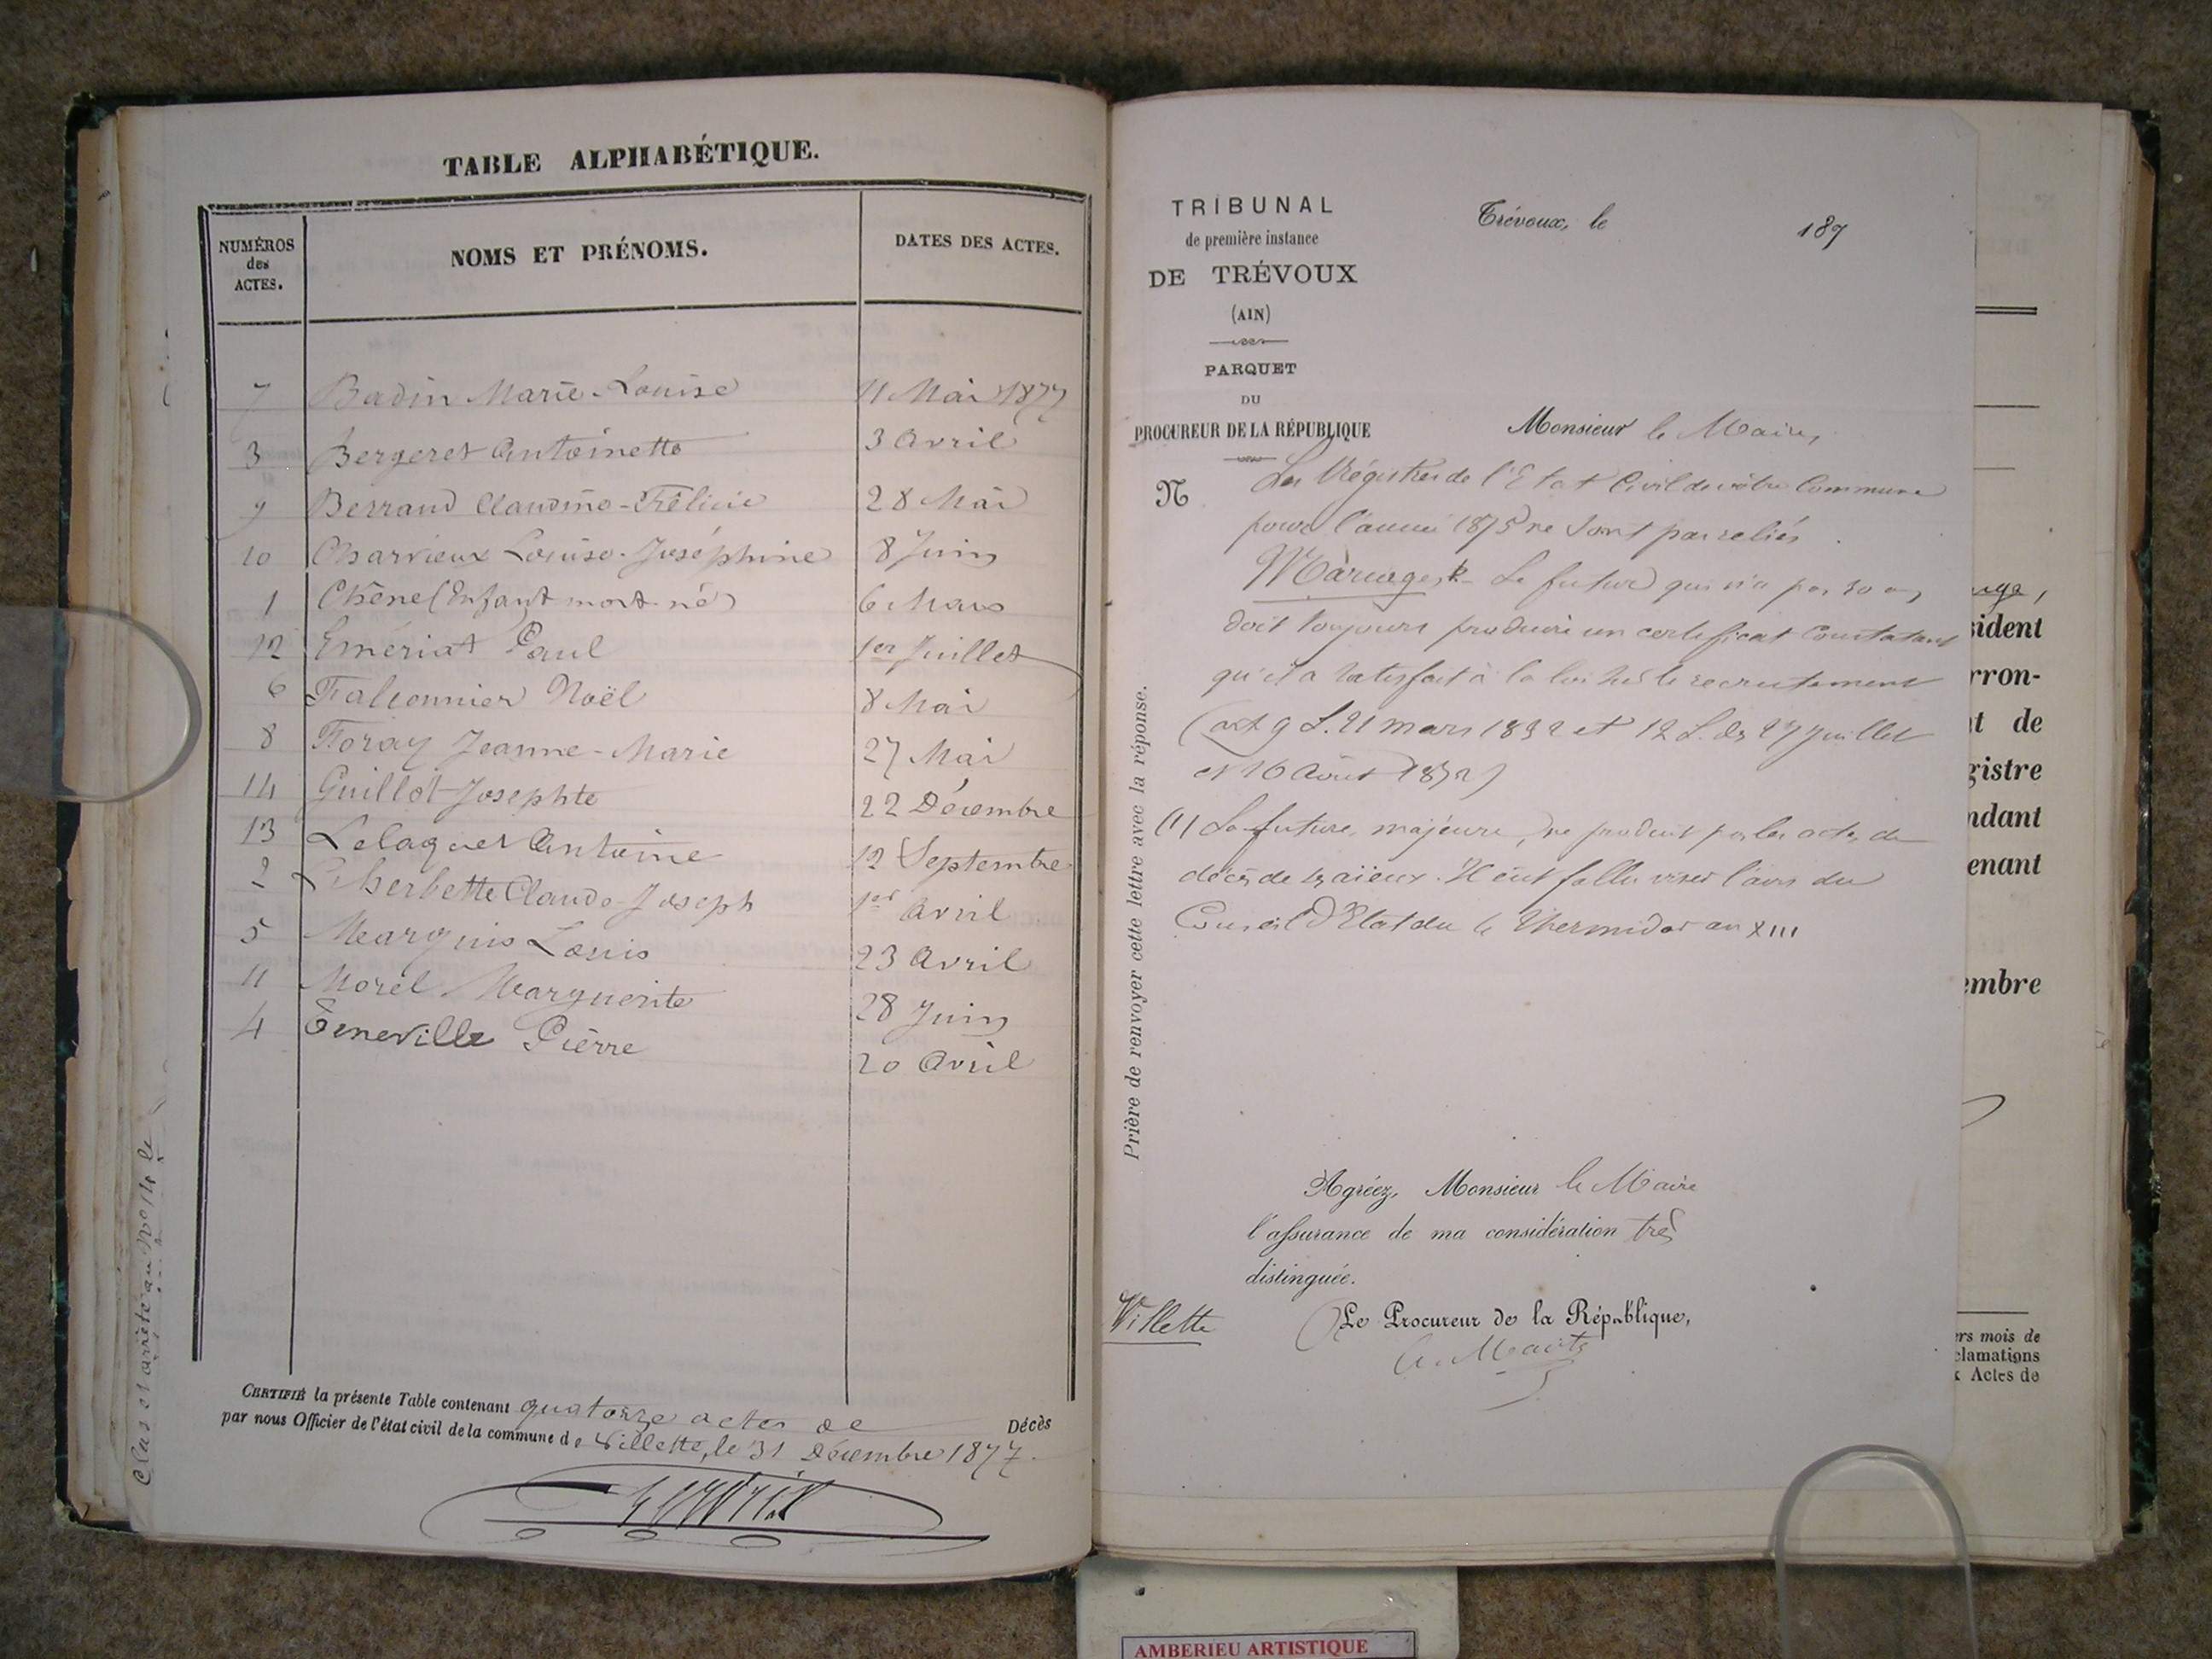 TABLE ALPHABÉTIQUE.
NUMÉROS des ACTES. NOMS ET PRÉNOMS. DATES DES ACTES.
7 Badin Marie-Louise 11 Mai 1877
3 Bergeret Antoinette 3 Avril
9 Berraud Claudine-Félicie 28 Mai
10 Charvieux Louise-Joséphine 8 Juin
1 Chêne (Enfant mort-né) 6 Mars
12 Emeriat Paul 1er Juillet
6 Falconnier Noël 8 Mai
8 Foray Jeanne-Marie 27 Mai
14 Guillot Josephte 22 Décembre
13 Lelaquet Antoine 12 Septembre
2 Lherbette Claude-Joseph 1er Avril
5 Marquis Louis 23 Avril
11 Morel Marguerite 28 Juin
4 Teneville Pierre 20 Avril
CERTIFIÉ la présente Table contenant quatorze actes de Décès
par nous Officier de l'état civil de la commune de Villette, le 31 Décembre 1877.
Clos et arrêté au No 14 le
TRIBUNAL
de première instance
DE TRÉVOUX
(AIN)
PARQUET
DU
PROCUREUR DE LA RÉPUBLIQUE
N
Trévoux, le 187
Monsieur le Maire,
Les Régistres de l'Etat Civil de votre Commune
pour l'année 1875 ne sont pas reliés.
Mariages, Le futur qui n'a pas 30 ans
doit toujours produire un certificat Constatant
qu'il a satisfait à la loi sur le recrutement
(art 9 L. 21 mars 1832 et 12 L. des 27 Juillet
et 16 Août 1872)
(1) La future, majeure, ne produit pas les actes de
décès de ses aïeux. Il eût fallu viser l'avis du
Conseil d'Etat du 4 Thermidor an XIII
Prière de renvoyer cette lettre avec la réponse.
Agréez, Monsieur le Maire
l'assurance de ma considération très
distinguée.
Le Procureur de la République,
Villette
uge,
sident
rron-
t de
gistre
ndant
enant
embre
ers mois de
clamations
x Actes de
AMBERIEU ARTISTIQUE